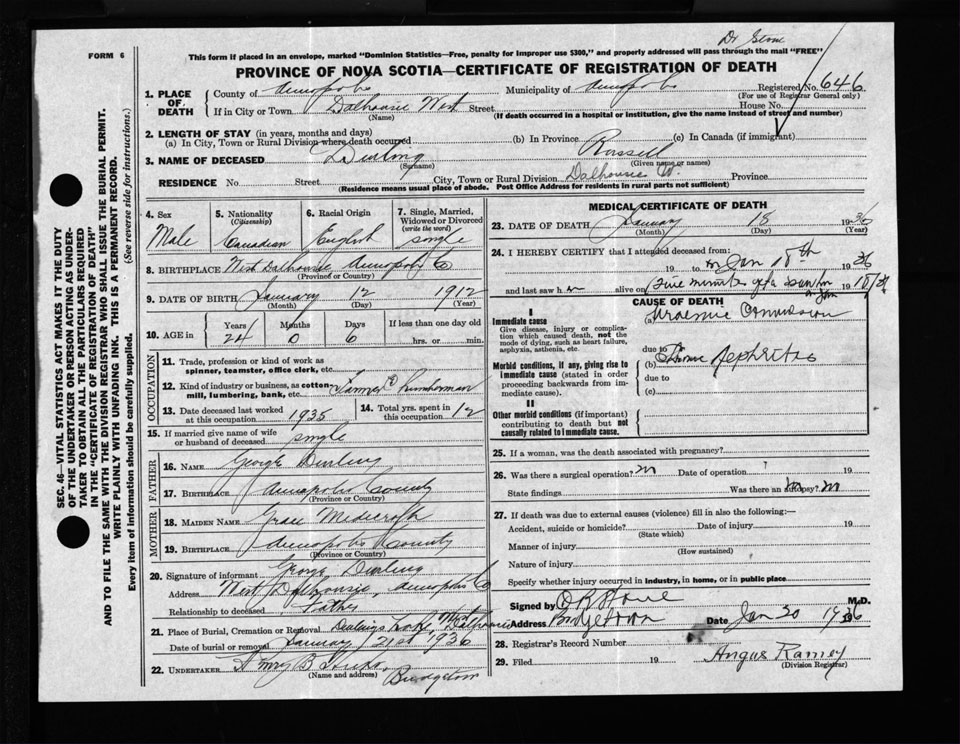 Dr Stone
FORM 6
This form if placed in an envelope, marked "Dominion Statistics—Free, penalty for improper use $300," and properly addressed will pass through the mail "FREE"
PROVINCE OF NOVA SCOTIA—CERTIFICATE OF REGISTRATION OF DEATH
1. PLACE OF DEATH
County of Annapolis Municipality of Annapolis Co Registered No. 646
(For use of Registrar General only)
If in City or Town Dalhousie West Street House No.
(Name) (If death occurred in a hospital or institution, give the name instead of street and number)
2. LENGTH OF STAY (in years, months and days)
(a) In City, Town or Rural Division where death occurred (b) In Province (c) In Canada (if immigrant)
3. NAME OF DECEASED Durling Russell
(Surname) (Given name or names)
RESIDENCE No. Street City, Town or Rural Division Dalhousie W. Province
(Residence means usual place of abode. Post Office Address for residents in rural parts not sufficient)
4. Sex Male
5. Nationality (Citizenship) Canadian
6. Racial Origin English
7. Single, Married, Widowed or Divorced (write the word) single
8. BIRTHPLACE West Dalhousie Annapolis Co
(Province or Country)
9. DATE OF BIRTH January 12 1912
(Month) (Day) (Year)
10. AGE in Years 24 Months 0 Days 6 If less than one day old hrs. or min.
OCCUPATION
11. Trade, profession or kind of work as spinner, teamster, office clerk, etc.
12. Kind of industry or business, as cotton mill, lumbering, bank, etc. Farmer & Lumberman
13. Date deceased last worked at this occupation 1935
14. Total yrs. spent in this occupation 12
15. If married give name of wife or husband of deceased single
FATHER
16. NAME George Durling
17. BIRTHPLACE Annapolis County
(Province or Country)
MOTHER
18. MAIDEN NAME Grace Medicraft
19. BIRTHPLACE Annapolis County
(Province or Country)
20. Signature of informant George Durling
Address West Dalhousie, Annapolis Co
Relationship to deceased Father
21. Place of Burial, Cremation or Removal Durlings Lake, West Dalhousie
Date of burial or removal January 21st 1936
22. UNDERTAKER
(Name and address) Bridgetown
MEDICAL CERTIFICATE OF DEATH
23. DATE OF DEATH January 18 1936
(Month) (Day) (Year)
24. I HEREBY CERTIFY that I attended deceased from:
19 to Jan 18th 1936
and last saw h alive on Five minutes 19
CAUSE OF DEATH
I
Immediate cause
Give disease, injury or complication which caused death, not the mode of dying, such as heart failure, asphyxia, asthenia, etc.
(a) Uraemic Convulsion
due to
Morbid conditions, if any, giving rise to immediate cause (stated in order proceeding backwards from immediate cause).
(b) Nephritis
due to
(c)
II
Other morbid conditions (if important) contributing to death but not causally related to immediate cause.
25. If a woman, was the death associated with pregnancy?
26. Was there a surgical operation? no Date of operation 19
State findings Was there an autopsy? no
27. If death was due to external causes (violence) fill in also the following:—
Accident, suicide or homicide? Date of injury 19
(State which)
Manner of injury
(How sustained)
Nature of injury
Specify whether injury occurred in industry, in home, or in public place
Signed by Stone M.D.
Address Bridgetown Date Jan 20 1936
28. Registrar's Record Number
29. Filed 19 Angus Ramey
(Division Registrar)
SEC. 46—VITAL STATISTICS ACT MAKES IT THE DUTY OF THE UNDERTAKER OR PERSON ACTING AS UNDERTAKER TO OBTAIN ALL THE PARTICULARS REQUIRED IN THE "CERTIFICATE OF REGISTRATION OF DEATH"
AND TO FILE THE SAME WITH THE DIVISION REGISTRAR WHO SHALL ISSUE THE BURIAL PERMIT.
WRITE PLAINLY WITH UNFADING INK. THIS IS A PERMANENT RECORD.
Every item of information should be carefully supplied. (See reverse side for instructions.)